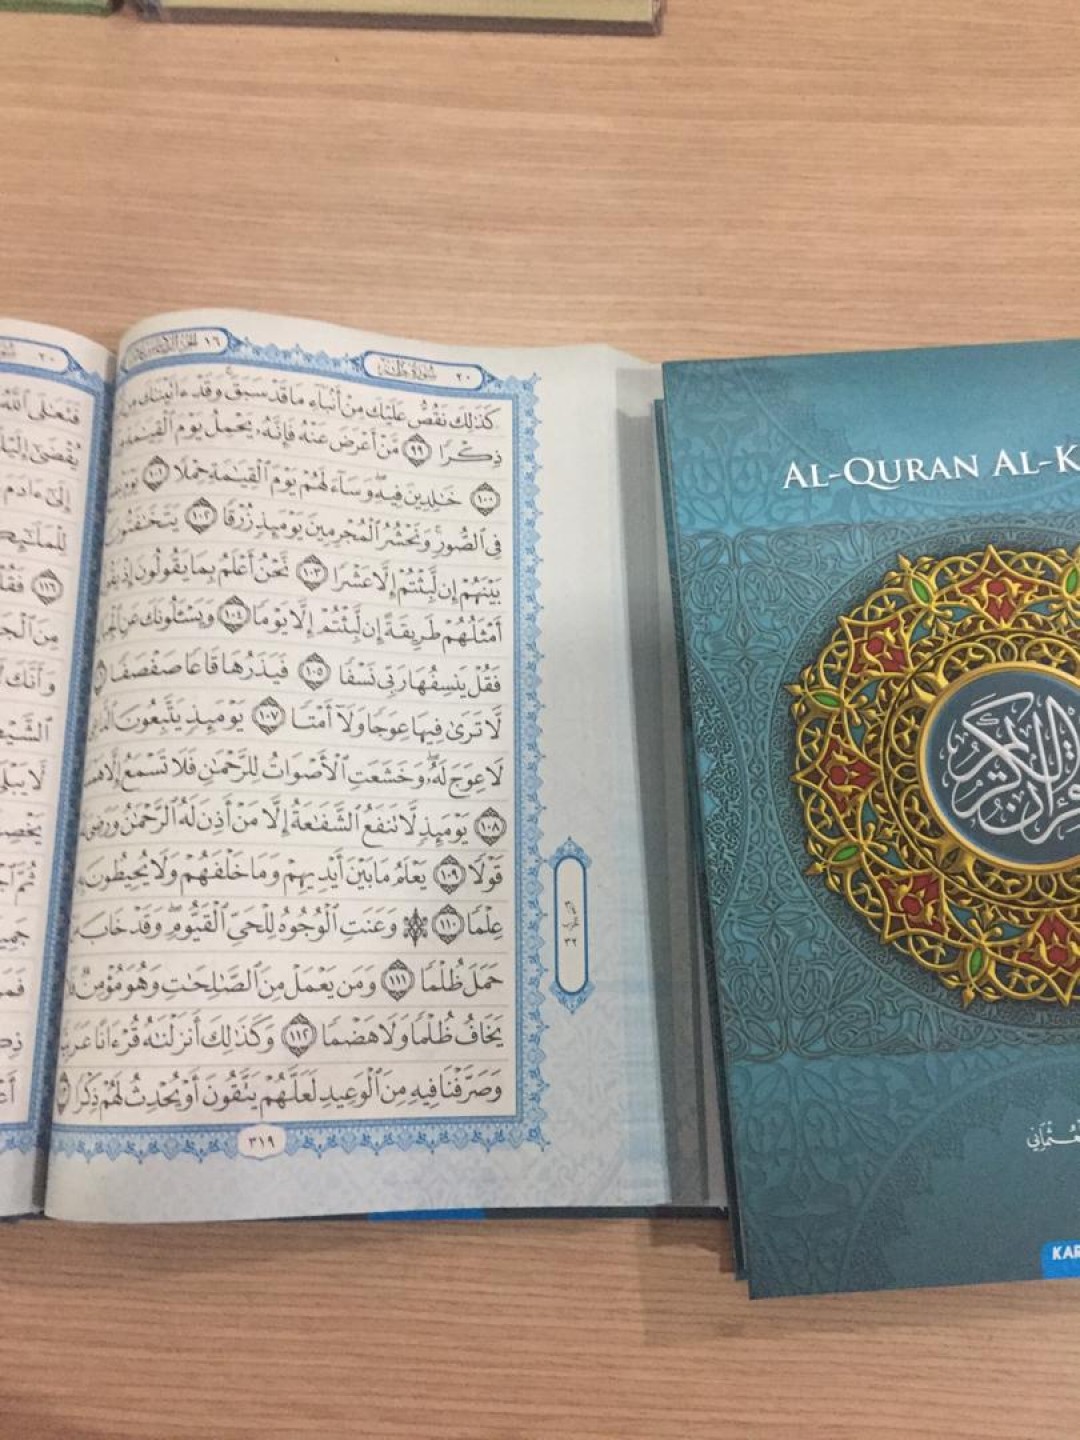 ٢٠ سُورَةُ طٰهٰ
١٦
كَذَٰلِكَ نَقُصُّ عَلَيْكَ مِنْ أَنۢبَآءِ مَا قَدْ سَبَقَ ۚ وَقَدْ ءَاتَيْنَٰكَ مِن
ذِكْرًا ٩٩ مَّنْ أَعْرَضَ عَنْهُ فَإِنَّهُۥ يَحْمِلُ يَوْمَ ٱلْقِيَٰمَةِ
١٠٠ خَٰلِدِينَ فِيهِ ۖ وَسَآءَ لَهُمْ يَوْمَ ٱلْقِيَٰمَةِ حِمْلًا ١٠١ يَوْمَ
فِى ٱلصُّورِ ۚ وَنَحْشُرُ ٱلْمُجْرِمِينَ يَوْمَئِذٍ زُرْقًا ١٠٢ يَتَخَٰفَتُونَ
بَيْنَهُمْ إِن لَّبِثْتُمْ إِلَّا عَشْرًا ١٠٣ نَّحْنُ أَعْلَمُ بِمَا يَقُولُونَ إِذْ
أَمْثَلُهُمْ طَرِيقَةً إِن لَّبِثْتُمْ إِلَّا يَوْمًا ١٠٤ وَيَسْـَٔلُونَكَ عَنِ
فَقُلْ يَنسِفُهَا رَبِّى نَسْفًا ١٠٥ فَيَذَرُهَا قَاعًا صَفْصَفًا
لَّا تَرَىٰ فِيهَا عِوَجًا وَلَآ أَمْتًا ١٠٧ يَوْمَئِذٍ يَتَّبِعُونَ ٱلدَّاعِىَ
لَا عِوَجَ لَهُۥ ۖ وَخَشَعَتِ ٱلْأَصْوَاتُ لِلرَّحْمَٰنِ فَلَا تَسْمَعُ إِلَّا هَمْسًا
١٠٨ يَوْمَئِذٍ لَّا تَنفَعُ ٱلشَّفَٰعَةُ إِلَّا مَنْ أَذِنَ لَهُ ٱلرَّحْمَٰنُ وَرَضِىَ
قَوْلًا ١٠٩ يَعْلَمُ مَا بَيْنَ أَيْدِيهِمْ وَمَا خَلْفَهُمْ وَلَا يُحِيطُونَ
عِلْمًا ١١٠ ۞ وَعَنَتِ ٱلْوُجُوهُ لِلْحَىِّ ٱلْقَيُّومِ ۖ وَقَدْ خَابَ
حَمَلَ ظُلْمًا ١١١ وَمَن يَعْمَلْ مِنَ ٱلصَّٰلِحَٰتِ وَهُوَ مُؤْمِنٌ
يَخَافُ ظُلْمًا وَلَا هَضْمًا ١١٢ وَكَذَٰلِكَ أَنزَلْنَٰهُ قُرْءَانًا عَرَبِيًّا
وَصَرَّفْنَا فِيهِ مِنَ ٱلْوَعِيدِ لَعَلَّهُمْ يَتَّقُونَ أَوْ يُحْدِثُ لَهُمْ ذِكْرًا
٣١٩
حزب
٣٢
٢٠
فَتَعَٰلَى ٱللَّهُ
يُقْضَىٰٓ
إِلَىٰٓ ءَادَمَ
١١٦
مِنَ
وَأَنَّكَ
لَّا يَبْلَىٰ
AL-QURAN AL-K
القرآن الكريم
KAR